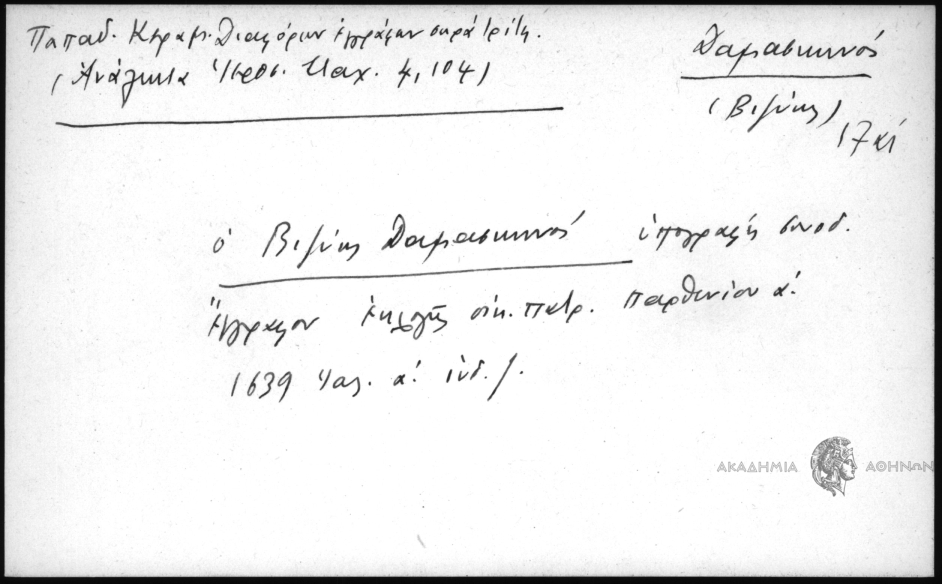 Παπαδ. Κεραμ. Διαφόρων ἐγγράφων σειρὰ τρίτη.
(Ἀνάλεκτα Ἱεροσ. Σταχ. 4, 104)
Δαμασκηνός
(Βιζύης)
17 αἰ
ὁ Βιζύης Δαμασκηνός ὑπογραφής συνοδ.
Ἔγγραφον ἐκλογῆς οἰκ. πατρ. Παρθενίου α΄.
1639 Ἰαν. α΄. ἰνδ. ζ.
ΑΚΑΔΗΜΙΑ ΑΘΗΝΩΝ